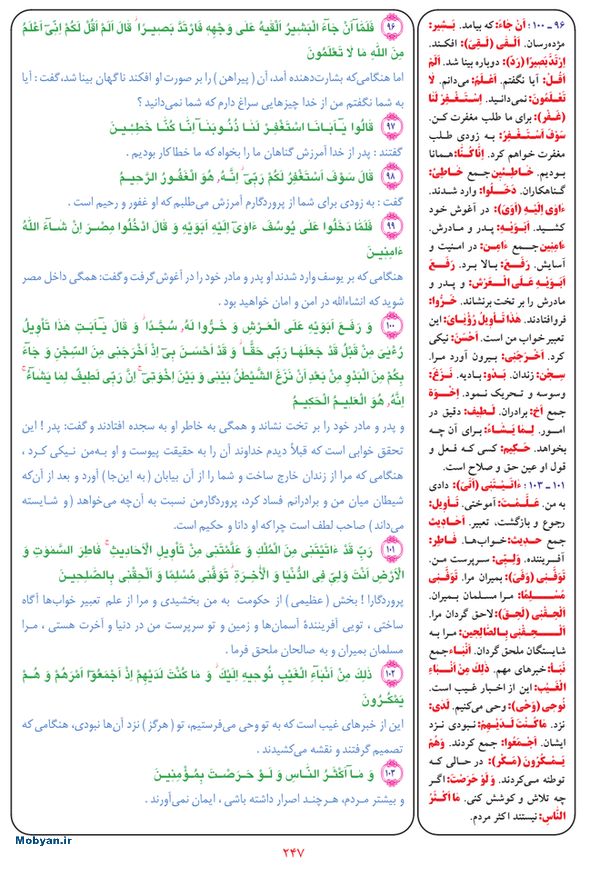 ۹۶ فَلَمَّآ أَنْ جَآءَ الْبَشيرُ أَلْقَيهُ عَلى وَجْهِهِ فَارْتَدَّ بَصيرًا ۖ قَالَ أَلَمْ أَقُلْ لَكُمْ إِنّى أَعْلَمُ
مِنَ اللهِ مَا لَا تَعْلَمُونَ
اما هنگامی‌که بشارت‌دهنده آمد، آن ( پیراهن ) را بر صورت او افکند ناگهان بینا شد، گفت : آیا
به شما نگفتم من از خدا چیزهایی سراغ دارم که شما نمی‌دانید ؟
۹۷ قَالُوا يَآأَبَانَا اسْتَغْفِرْ لَنَا ذُنُوبَنَآ إِنَّا كُنَّا خَطِئينَ
گفتند : پدر از خدا آمرزش گناهان ما را بخواه که ما خطاکار بودیم .
۹۸ قَالَ سَوْفَ أَسْتَغْفِرُ لَكُمْ رَبّى ۖ إِنَّهُ هُوَ الْغَفُورُ الرَّحيمُ
گفت : به زودی برای شما از پروردگارم آمرزش می‌طلبم که او غفور و رحیم است .
۹۹ فَلَمَّا دَخَلُوا عَلى يُوسُفَ ءَاوى إِلَيْهِ أَبَوَيْهِ وَ قَالَ ادْخُلُوا مِصْرَ إِنْ شَآءَ اللهُ
ءَامِنينَ
هنگامی‌که بر یوسف وارد شدند او پدر و مادر خود را در آغوش گرفت و گفت: همگی داخل مصر
شوید که انشاءالله در امن و امان خواهید بود .
۱۰۰ وَ رَفَعَ أَبَوَيْهِ عَلَى الْعَرْشِ وَ خَرُّوا لَهُ سُجَّدًا ۖ وَ قَالَ يَآأَبَتِ هَذَا تَأْويلُ
رُءْيىَ مِنْ قَبْلُ قَدْ جَعَلَهَا رَبّى حَقًّا ۖ وَ قَدْ أَحْسَنَ بى إِذْ أَخْرَجَنى مِنَ السِّجْنِ وَ جَآءَ
بِكُمْ مِنَ الْبَدْوِ مِنْ بَعْدِ أَنْ نَزَغَ الشَّيْطَنُ بَيْنى وَ بَيْنَ إِخْوَتى ۚ إِنَّ رَبّى لَطيفٌ لِمَا يَشَآءُ ۚ
إِنَّهُ هُوَ الْعَليمُ الْحَكيمُ
و پدر و مادر خود را بر تخت نشاند و همگی به خاطر او به سجده افتادند و گفت: پدر ! این
تحقق خوابی است که قبلاً دیدم خداوند آن را به حقیقت پیوست و او به‌من نیکی کرد ،
هنگامی که مرا از زندان خارج ساخت و شما را از آن بیابان ( به این‌جا ) آورد و بعد از آن‌که
شیطان میان من و برادرانم فساد کرد، پروردگارمن نسبت به آن‌چه می‌خواهد ( و شایسته
می‌داند ) صاحب لطف است چراکه او دانا و حکیم است .
۱۰۱ رَبِّ قَدْ ءَاتَيْتَنى مِنَ الْمُلْكِ وَ عَلَّمْتَنى مِنْ تَأْويلِ الْأَحَاديثِ ۚ فَاطِرَ السَّمَوَتِ وَ
الْأَرْضِ أَنْتَ وَلِىّ فِى الدُّنْيَا وَ الْآخِرَةِ ۖ تَوَفَّنى مُسْلِمًا وَ أَلْحِقْنى بِالصَّلِحينَ
پروردگارا ! بخش ( عظیمی ) از حکومت به من بخشیدی و مرا از علم تعبیر خواب‌ها آگاه
ساختی ، تویی آفرینندۀ آسمان‌ها و زمین و تو سرپرست من در دنیا و آخرت هستی ، مرا
مسلمان بمیران و به صالحان ملحق فرما .
۱۰۲ ذَلِكَ مِنْ أَنْبَآءِ الْغَيْبِ نُوحيهِ إِلَيْكَ ۖ وَ مَا كُنْتَ لَدَيْهِمْ إِذْ أَجْمَعُوآ أَمْرَهُمْ وَ هُمْ
يَمْكُرُونَ
این از خبرهای غیب است که به تو وحی می‌فرستیم، تو ( هرگز ) نزد آن‌ها نبودی، هنگامی که
تصمیم گرفتند و نقشه می‌کشیدند .
۱۰۳ وَ مَآ أَكْثَرُ النَّاسِ وَ لَوْ حَرَصْتَ بِمُؤْمِنينَ
و بیشتر مردم، هرچند اصرار داشته باشی ، ایمان نمی‌آورند .
۹۶ ـ ۱۰۰ : أَنْ جَاءَ: که بیامد. بَشير:
مژده‌رسان. أَلْقَى (لَقِىَ): افکند.
اِرْتَدَّ بَصيرًا (رَدَّ): دوباره بینا شد. أَلَمْ
أَقُلْ: آیا نگفتم. أَعْلَمُ: می‌دانم. لَا
تَعْلَمُونَ: نمی‌دانید. اِسْتَغْفِرْ لَنَا
(غَفَرَ): برای ما طلب مغفرت کن.
سَوْفَ أَسْتَغْفِرُ: به زودی طلب
مغفرت خواهم کرد. إِنَّا كُنَّا: همانا
بودیم. خَاطِئينَ جمع خَاطِئ:
گناهکاران. دَخَلُوا: وارد شدند.
ءَاوى إِلَيْهِ (أَوَىَ): در آغوش خود
کشید. أَبَوَيْهِ: پدر و مادرش.
ءَامِنينَ جمع ءَامِن: در امنیت و
آسایش. رَفَعَ: بالا برد. رَفَعَ
أَبَوَيْهِ عَلَى الْعَرْشِ: و پدر و
مادرش را بر تخت برنشاند. خَرُّوا:
فروافتادند. هَذَا تَأْويلُ رُؤْيَاىَ: این
تعبیر خواب من است. أَحْسَنَ: نیکی
کرد. أَخْرَجَنى: بیرون آورد مرا.
سِجْن: زندان. بَدْو: بادیه. نَزَغَ:
وسوسه و تحریک نمود. إِخْوَة
جمع أَخ: برادران. لَطيف: دقیق در
امور. لِمَا يَشَاءُ: برای آن چه
بخواهد. حَكيم: کسی که فعل و
قول او عین حق و صلاح است.
۱۰۱ ـ ۱۰۳ : ءَاتَيْتَنى (أَتَىَ): دادی
به من. عَلَّمْتَ: آموختی. تَأْويل:
رجوع و بازگشت، تعبیر. أَحَاديث
جمع حَديث: خواب‌ها. فَاطِر:
آفریننده. وَلِيّى: سرپرست من.
تَوَفَّنى (وَفَىَ): بمیران مرا. تَوَفَّنى
مُسْلِمًا: مرا مسلمان بمیران.
أَلْحِقْنى (لَحِقَ): لاحق گردان مرا.
أَلْحِقْنى بِالصَّالِحينَ: مرا به
شایستگان ملحق گردان. أَنْبَاء جمع
نَبَأ: خبرهای مهم. ذَلِكَ مِنْ أَنْبَاءِ
الْغَيْبِ: این از اخبار غیب است.
نُوحى (وَحَىَ): وحی می‌کنیم. لَدَى:
نزد. مَا كُنْتَ لَدَيْهِمْ: نبودی نزد
ایشان. أَجْمَعُوا: جمع کردند. وَهُمْ
يَمْكُرُونَ (مَكَرَ): در حالی که
توطئه می‌کردند. وَ لَوْ حَرَصْتَ: اگر
چه تلاش و کوشش کنی. مَا أَكْثَرُ
النَّاسِ: نیستند اکثر مردم.
Mobyan.ir
۲۴۷